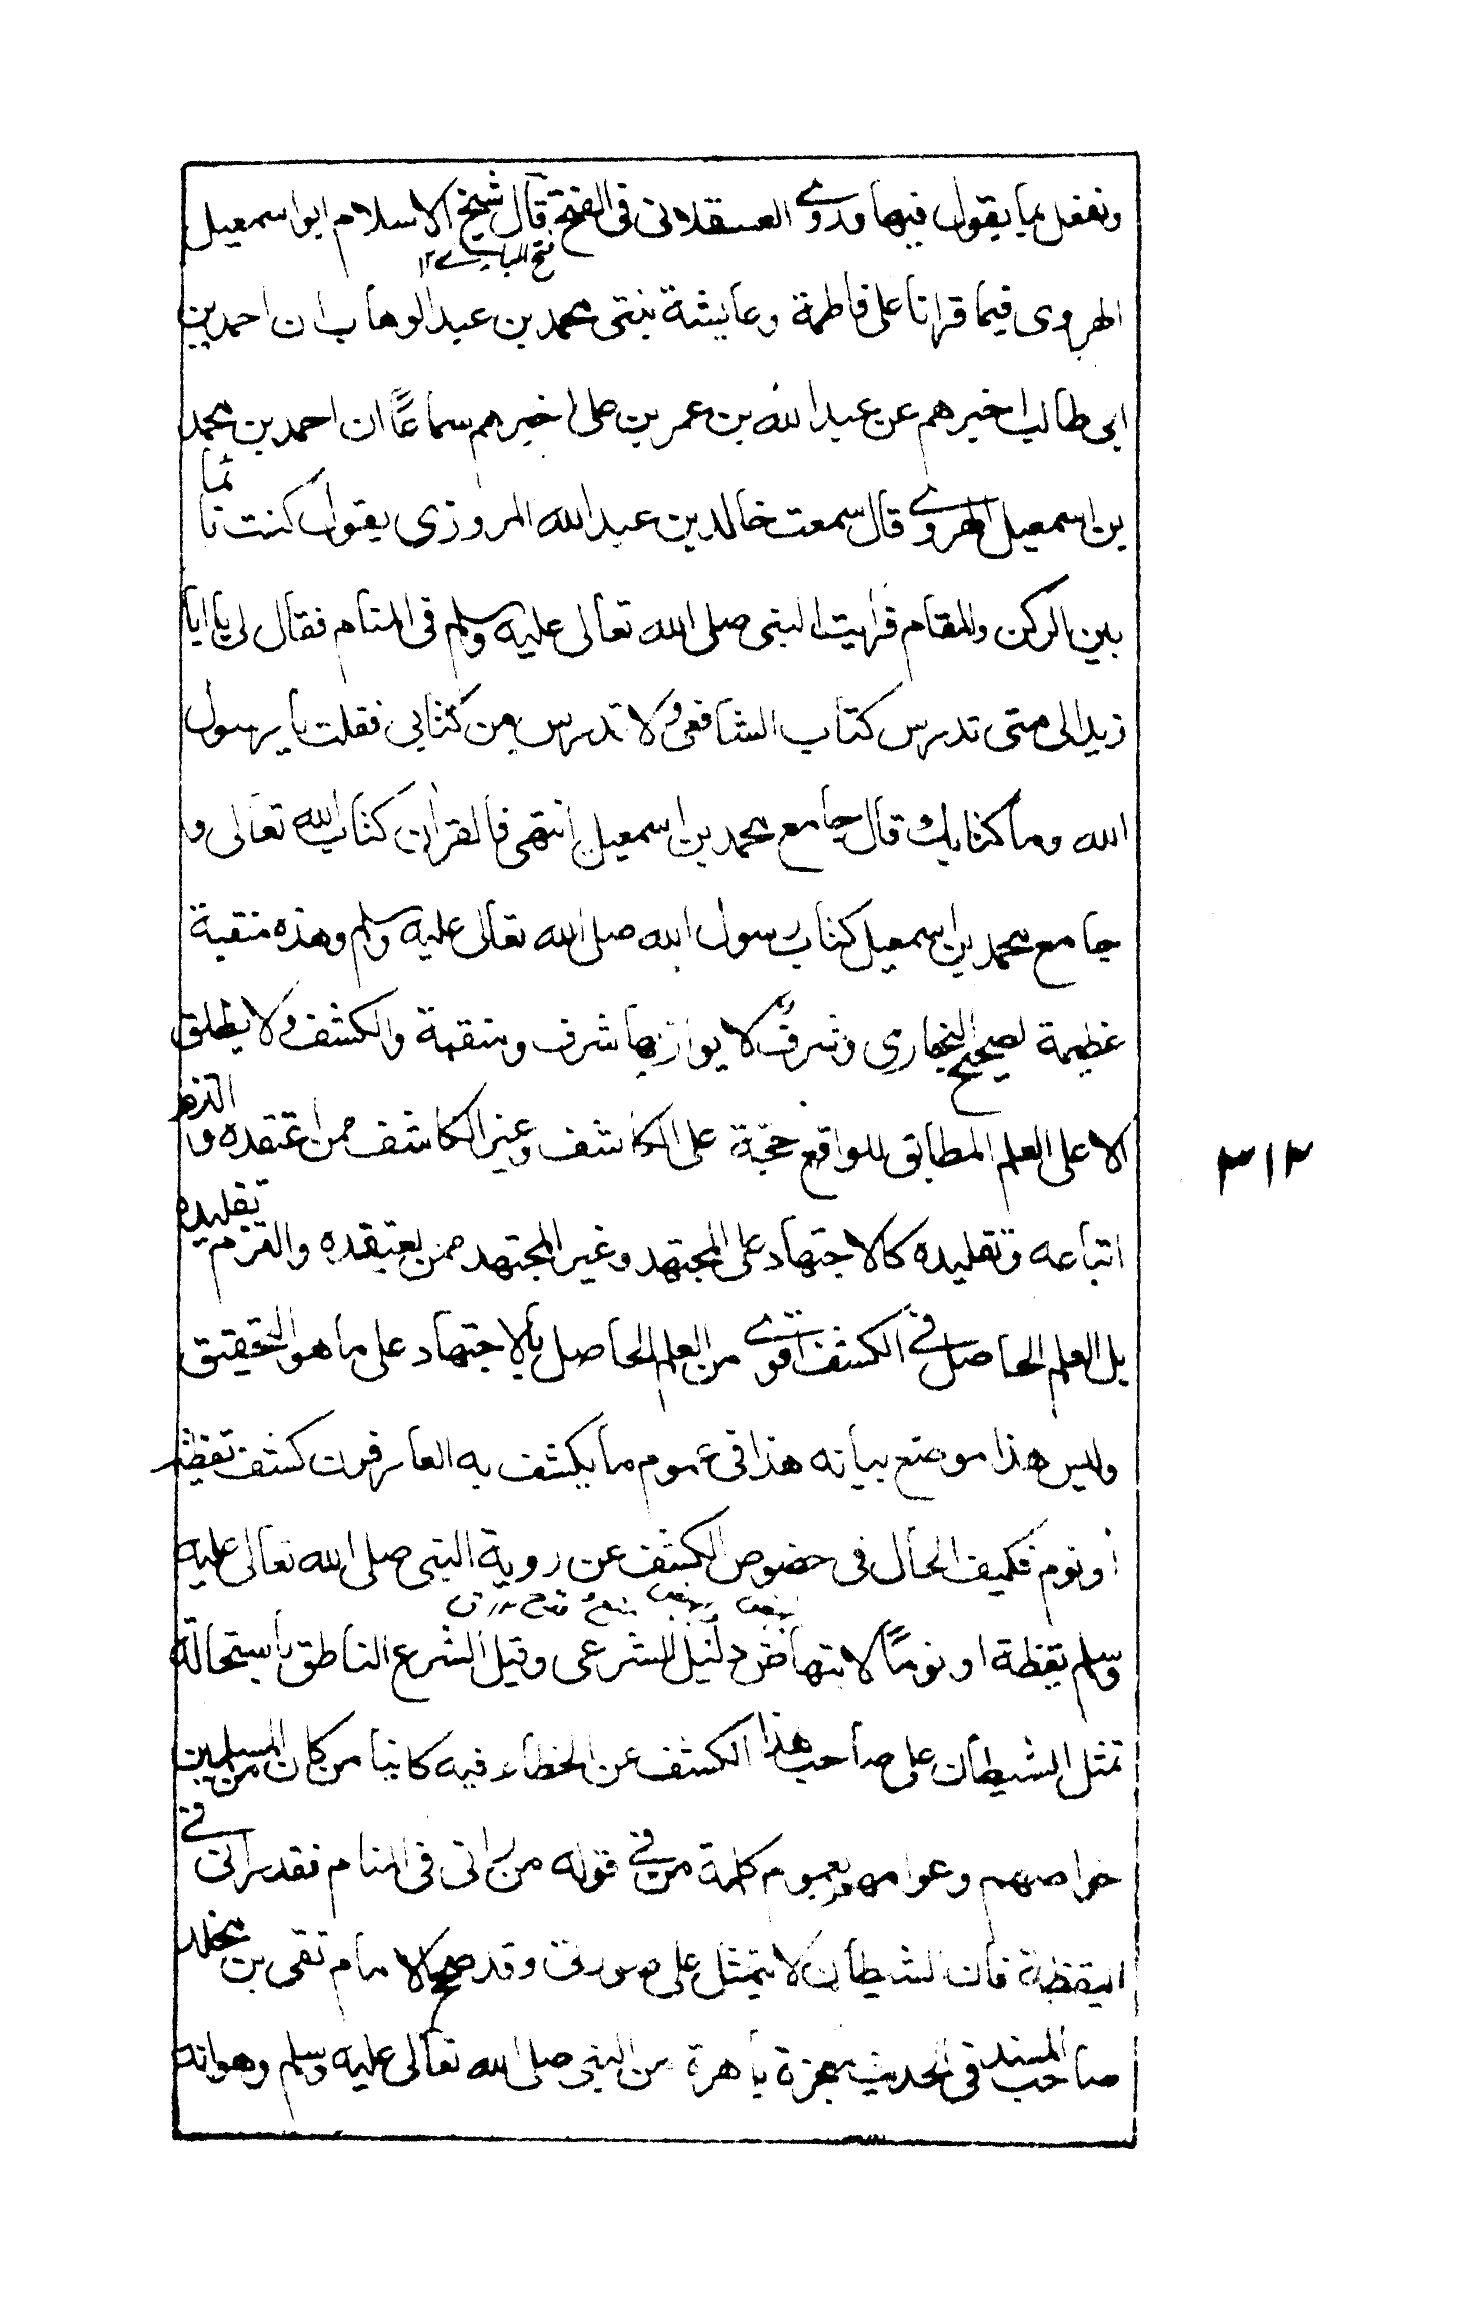 ونفعل بما يقول فيها وروى العسقلانى فى الفتح قال شيخ الاسلام ابوا سمعيل
فتح البارى ١٢
الهروى فيما قرانا على فاطمة وعايشة بنتى محمد بن عبد الوهاب ان احمد بن
ابى طالب اخبرهم عن عبد الله بن عمر بن على اخبرهم سماعًا ان احمد بن محمد
بن اسمعيل الهروى قال سمعت خالد بن عبد الله المروزى يقول كنت نائما
بين الركن والمقام فرايت النبى صلى الله تعالى عليه وسلم فى المنام فقال لى يا ابا
زيد الى متى تدرس كتاب الشافعى ولا تدرس من كتابى فقلت يا رسول
الله وما كتابك قال جامع محمد بن اسمعيل انتهى فالقران كتاب الله تعالى و
جامع محمد بن اسمعيل كتاب رسول الله صلى الله تعالى عليه وسلم وهذه منقبة
عظيمة لصحيح البخارى وشرف لا يوازيها شرف ومنقبة والكشف ولا يطلق
الا على العلم المطابق للواقع حجة على الكاشف وغير الكاشف ممن اعتقده والتزم
اتباعه وتقليده كالاجتهاد على المجتهد وغير المجتهد ممن يعتقده والتزم تقليده
بل العلم الحاصل فى الكشف اقوى من العلم الحاصل بالاجتهاد على ما هو التحقيق
وليس هذا موضع بيانه هذا فى عموم ما يكشف به العارفون كشف يقظة
او نوم فكيف الحال فى خصوص الكشف عن روية النبى صلى الله تعالى عليه
وسلم يقظة او نومًا لانتهاض دليل الشرعى وقيل الشرع الناطق باستحالة
تمثل الشيطان على صاحب هذا الكشف عن الخطاء فيه كائنا من كان من المسلمين
خواصهم وعوامهم بعموم كلمة من فى قوله من رانى فى المنام فقد رانى فى
اليقظة فان الشيطان لا يتمثل على صورتى وقد صح لامام تقى بن مخلد
صاحب المسند فى الحديث معجزة باهرة من النبى صلى الله تعالى عليه وسلم وهوانه
٣١٢